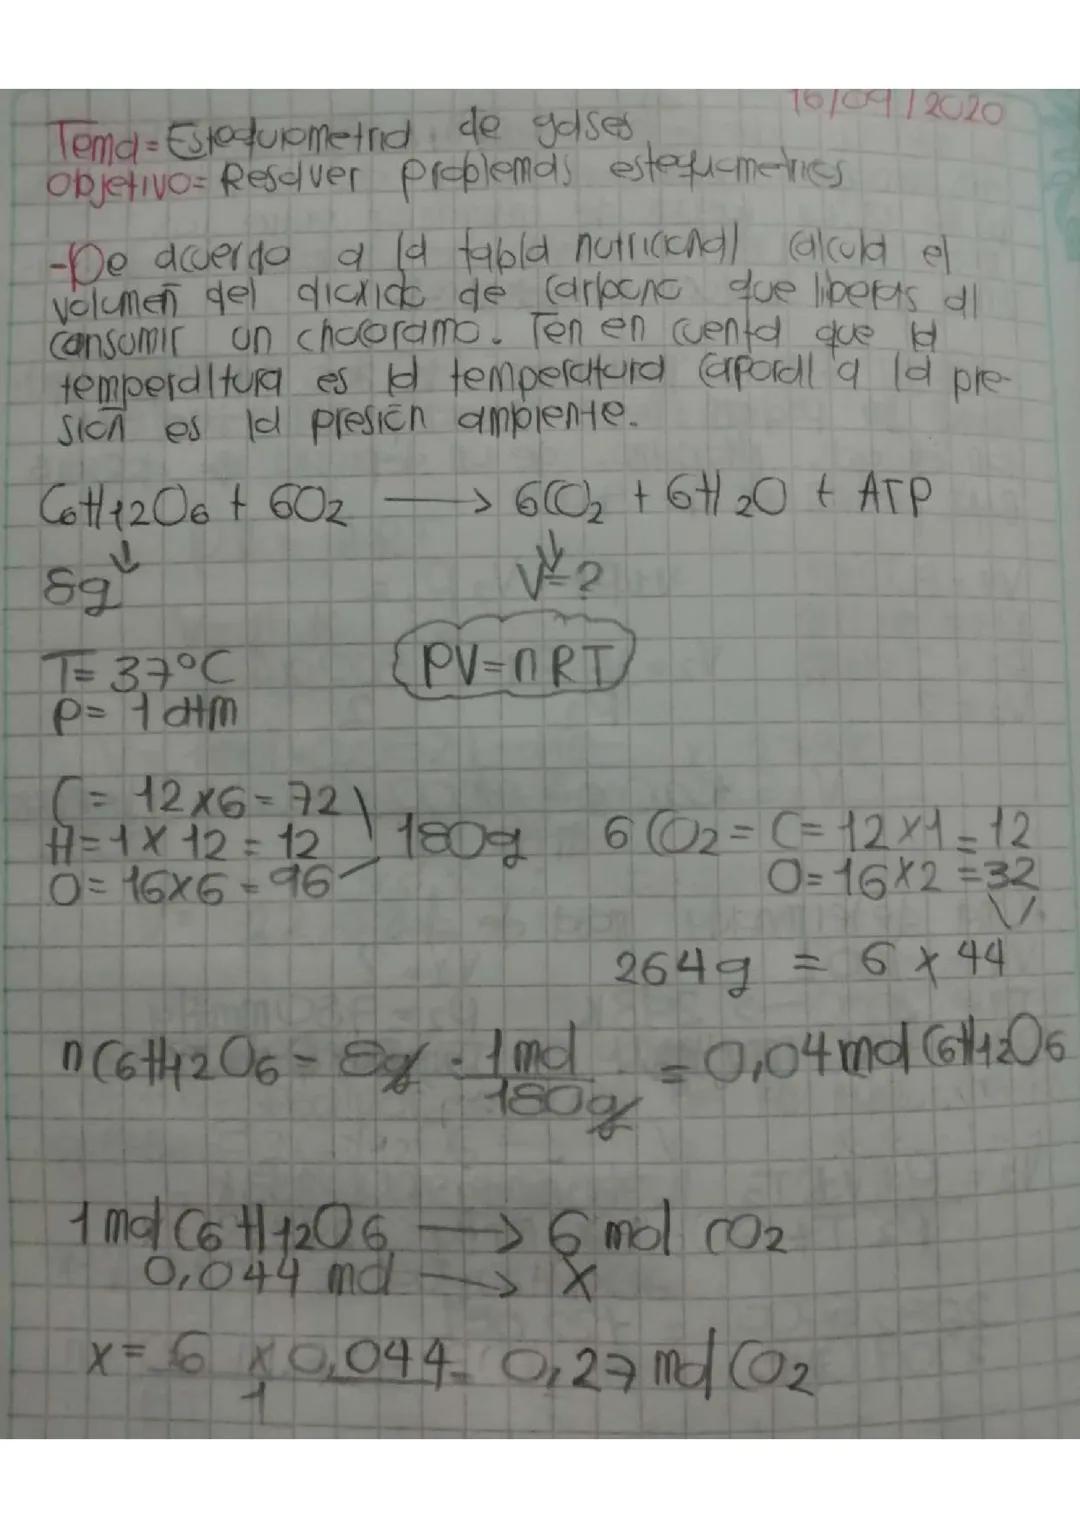 16/09/2020
Tema = Estequiometria de gases
Objetivo = Resolver problemas estequiometrics
- De acuerdo a la tabla nutricional calcula el
volumen del dioxido de carbono que liberas al
consumir un chocoramo. Ten en cuenta que la
temperaltura es la temperatura corporal a la pre-
sión es la presión ambiente.
C6H12O6 + 6O2 → 6CO2 + 6H2O + ATP
8g V=?
T= 37°C PV=nRT
P= 1 atm
C= 12x6=72
H=1x12=12 180g 6CO2= C=12x1=12
O=16x6=96 O=16x2=32
264g = 6x44
nC6H12O6= 8g · 1mol = 0,04mol C6H12O6
180g
1mol C6H12O6 → 6 mol CO2
0,044 mol → X
x= 6 x 0,044 = 0,27 mol CO2
1